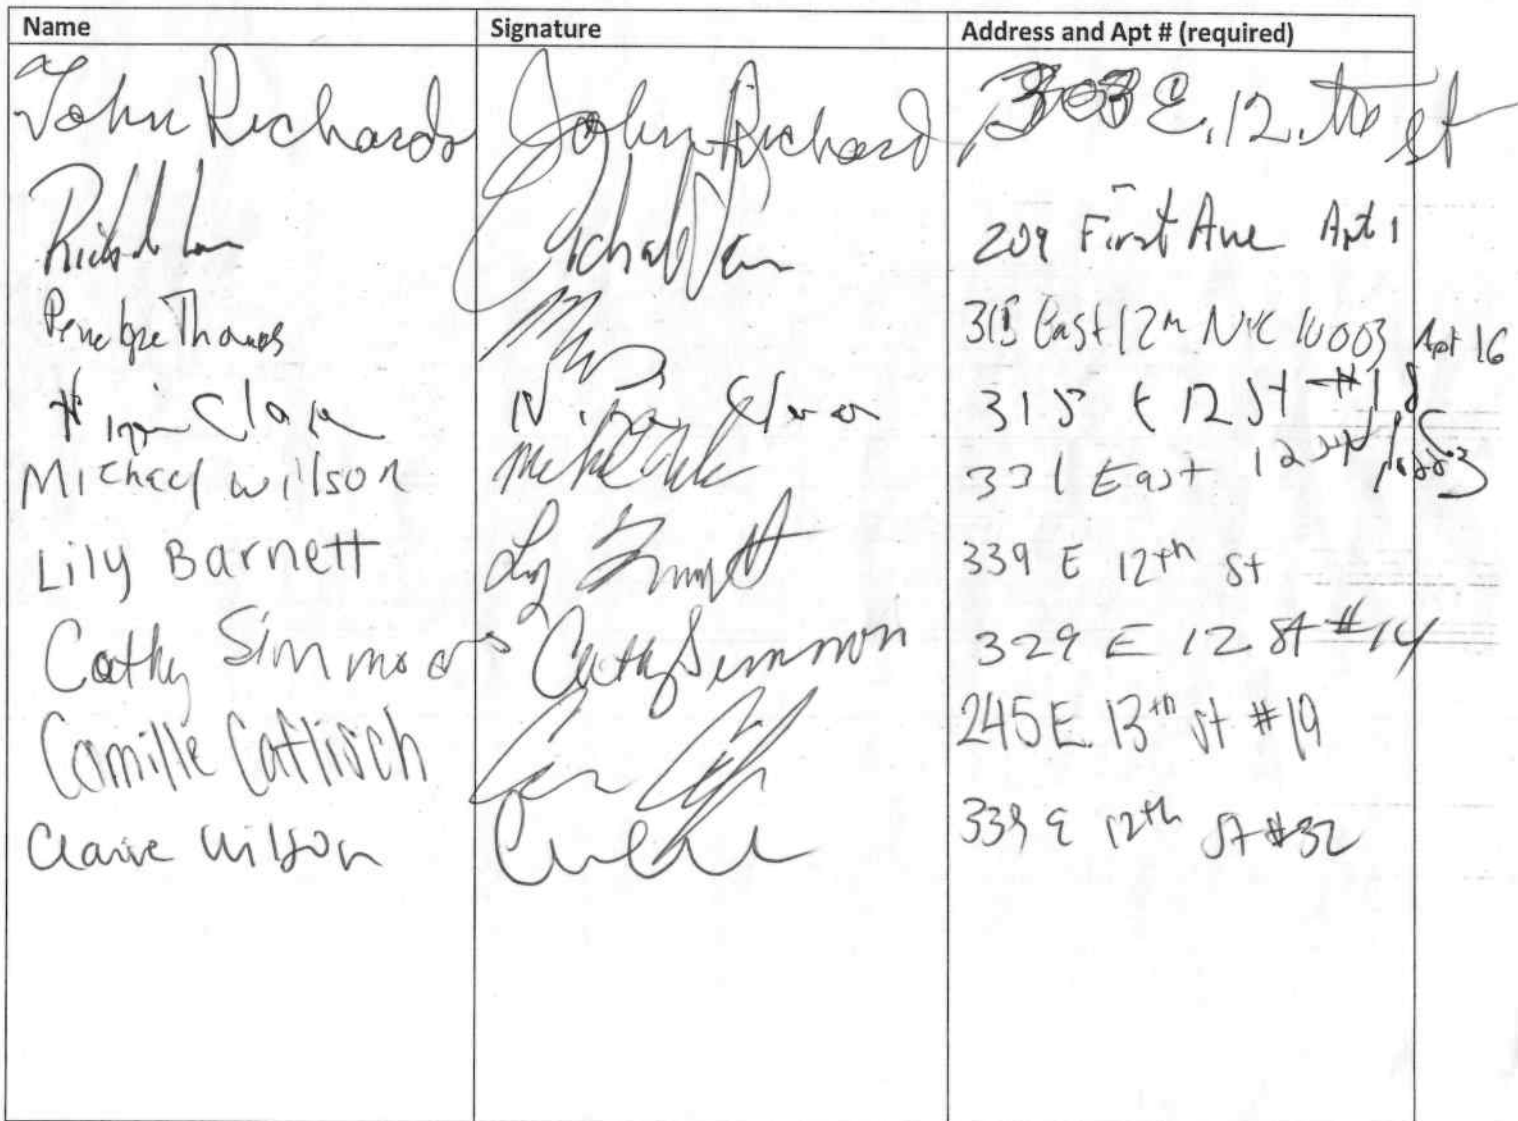 Name Signature Address and Apt # (required)
John Richards John Richard 303 E. 12. th St
209 First Ave Apt 1
Penelope Thomas East 12th NYC 10003 Apt 16
315 E 12 St #18
Michael Wilson 331 East 12
Lily Barnett 339 E 12th St
Cathy Simmons Cathy Simmon 329 E 12 St #14
Camille Caflisch 245 E 13th St #19
Claire Wilson 339 E 12th St #32